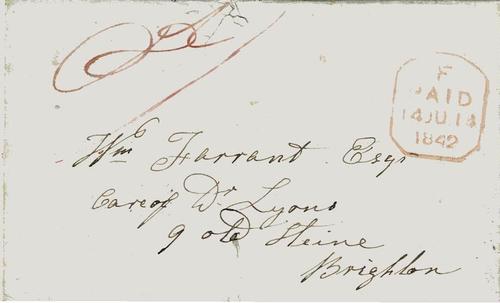 F
PAID
14JU14
1842
Wm Farrant Esqr
Care of Dr Lyons
9 old Steine
Brighton